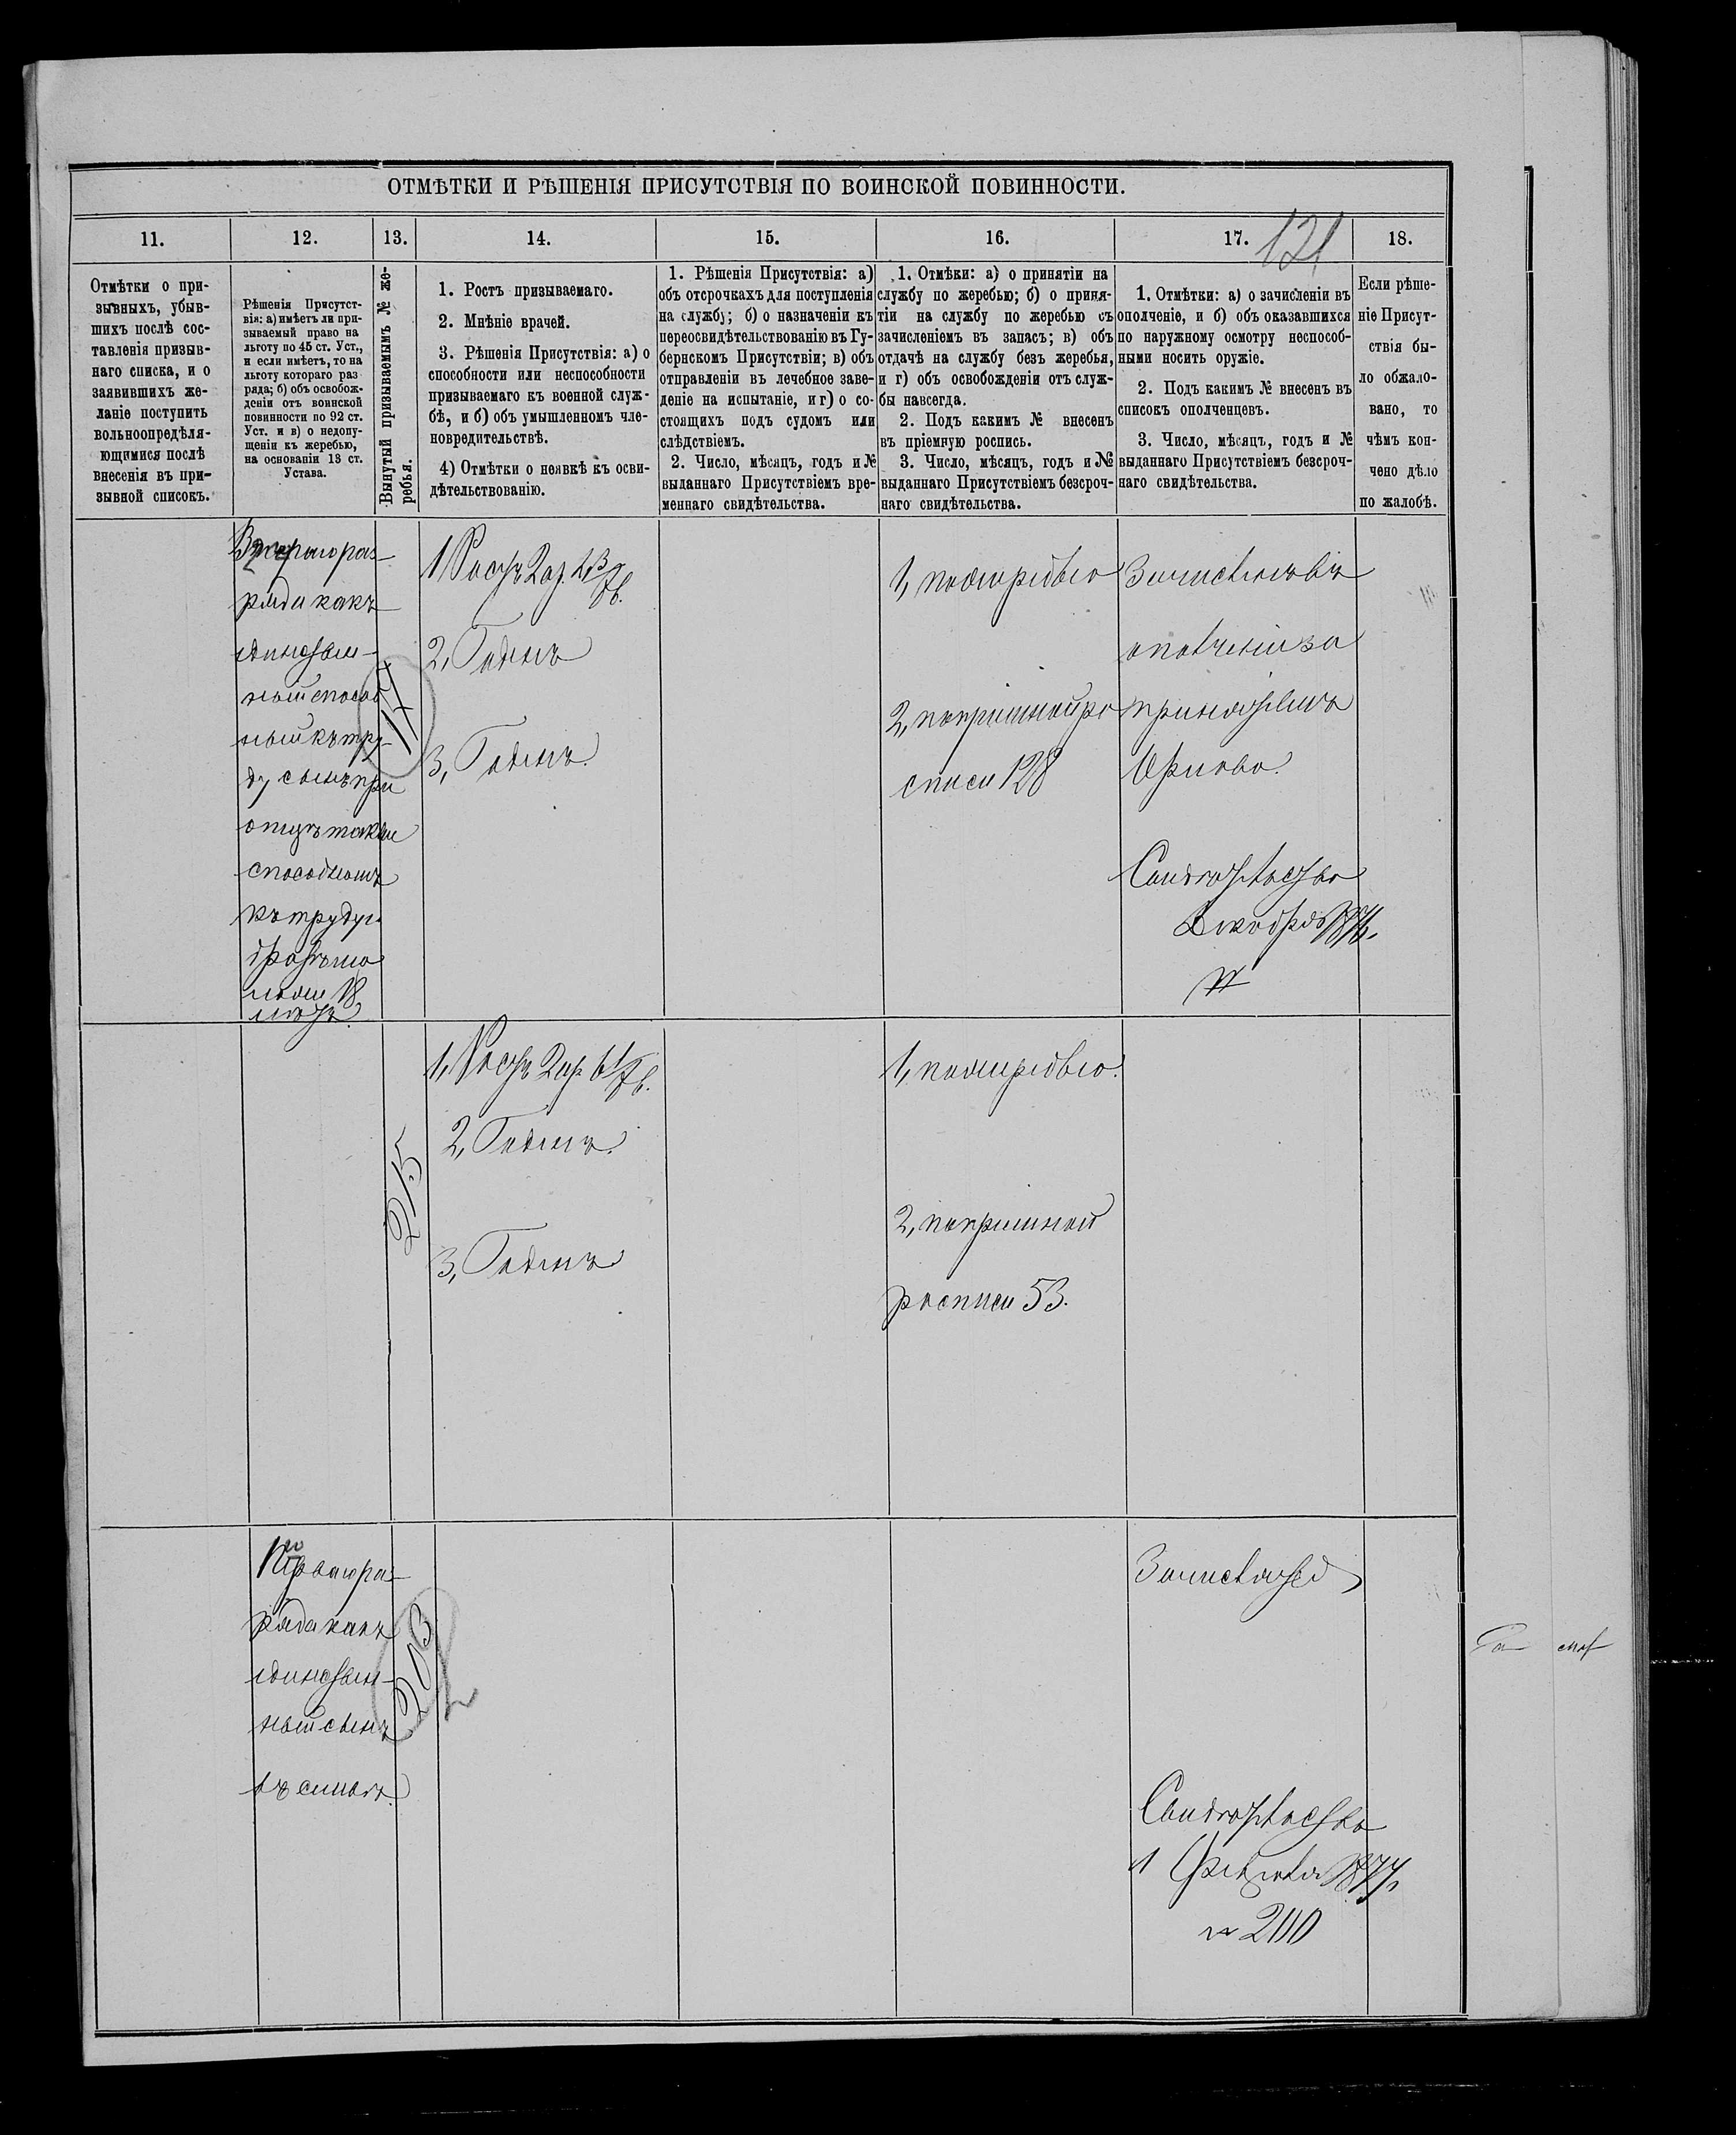 ОТМѢТКИ И РѢШЕНІЯ ПРИСУТСТВІЯ ПО ВОИНСКОЙ ПОВИННОСТИ.
121
11.
12.
13.
14.
15.
16.
17.
18.
Отмѣтки о при-
зывныхъ, убыв-
шихъ послѣ сос-
тавленія призыв-
наго списка, и о
заявившихъ же-
ланіе поступить
вольноопредѣля-
ющимися послѣ
внесенія въ при-
зывной списокъ.
Рѣшенія Присутст-
вія: а) имѣетъ ли при-
зываемый право на
льготу по 45 ст. Уст.,
и если имѣетъ, то на
льготу котораго раз
ряда; б) объ освобож-
деніи отъ воинской
повинности по 92 ст.
Уст. и в) о недопу-
щеніи къ жеребью,
на основаніи 13 ст.
Устава.
Вынутый призываемымъ № же-
ребья.
1. Ростъ призываемаго.
2. Мнѣніе врачей.
3. Рѣшенія Присутствія: а) о
способности или неспособности
призываемаго къ военной служ-
бѣ, и б) объ умышленномъ чле-
новредительствѣ.
4) Отмѣтки о неявкѣ къ осви-
дѣтельствованію.
1. Рѣшенія Присутствія: а)
объ отсрочкахъ для поступленія
на службу; б) о назначеніи къ
переосвидѣтельствованію въ Гу-
бернскомъ Присутствіи; в) объ
отправленіи въ лечебное заве-
деніе на испытаніе, и г) о со-
стоящихъ подъ судомъ или
слѣдствіемъ.
2. Число, мѣсяцъ, годъ и №
выданнаго Присутствіемъ вре-
меннаго свидѣтельства.
1. Отмѣки: а) о принятіи на
службу по жеребью; б) о приня-
тіи на службу по жеребью съ
зачисленіемъ въ запасъ; в) объ
отдачѣ на службу безъ жеребья,
и г) объ освобожденіи отъ служ-
бы навсегда.
2. Подъ какимъ № внесенъ
въ пріемную роспись.
3. Число, мѣсяцъ, годъ и №
выданнаго Присутствіемъ безсроч-
наго свидѣтельства.
1. Отмѣтки: а) о зачисленіи въ
ополченіе, и б) объ оказавшихся
по наружному осмотру неспособ-
ными носить оружіе.
2. Подъ какимъ № внесенъ въ
списокъ ополченцевъ.
3. Число, мѣсяцъ, годъ и №
выданнаго Присутствіемъ безсроч-
наго свидѣтельства.
Если рѣше-
ніе Присут-
ствія бы-
ло обжало-
вано, то
чѣмъ кон-
чено дѣло
по жалобѣ.
Втораго раз-
ряда какъ
единствен-
ный способ
ный къ тру-
ду сынъ при
отцѣ также
способномъ
къ труду и
братьяхъ
18
лѣтъ
17
1 Ростъ 2 ар. 2 3/7 в.
2, Годенъ
3, Годенъ.
1, по жеребью
2, по приемной ро
списи 128
Зачисленъ въ
ополченіи за
принятіемъ
Свидѣтельство
Декабря 1876.
№
215
1, Ростъ 2 ар 6 1/7 в.
2, Годенъ.
3, Годенъ
1, по жеребью.
2, по приемной
росписи 53.
Перваго раз-
ряда какъ
единствен-
ный сынъ
въ семьѣ.
203
Зачисляется
Свидѣтельство
1 Февраля 1877.
№ 200